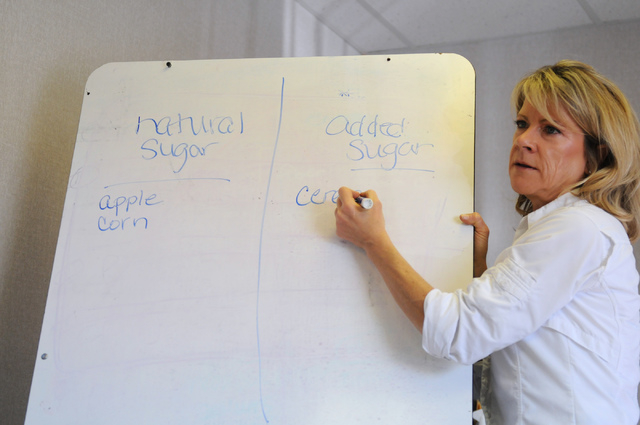 natural
sugar
apple
corn
added
sugar
cer